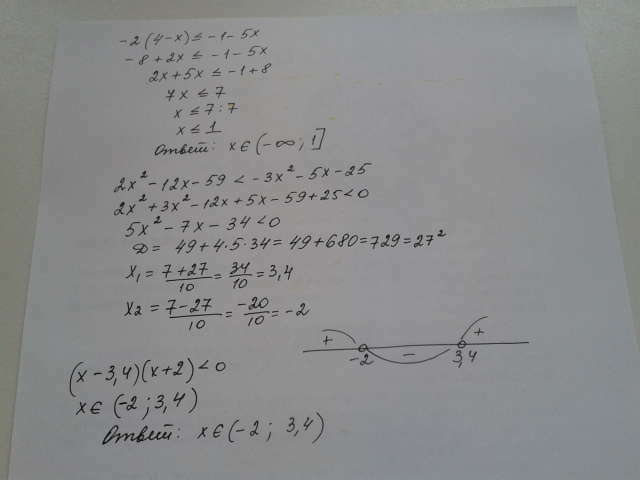 -2(4-x) ≤ -1-5x
-8+2x ≤ -1-5x
2x+5x ≤ -1+8
7x ≤ 7
x ≤ 7:7
x ≤ 1
Ответ: x ∈ (-∞; 1]
2x² - 12x - 59 < -3x² - 5x - 25
2x² + 3x² - 12x + 5x - 59 + 25 < 0
5x² - 7x - 34 < 0
D = 49 + 4·5·34 = 49 + 680 = 729 = 27²
x₁ = (7+27)/10 = 34/10 = 3,4
x₂ = (7-27)/10 = -20/10 = -2
+ - +
-2 3,4
(x - 3,4)(x + 2) < 0
x ∈ (-2; 3,4)
Ответ: x ∈ (-2; 3,4)